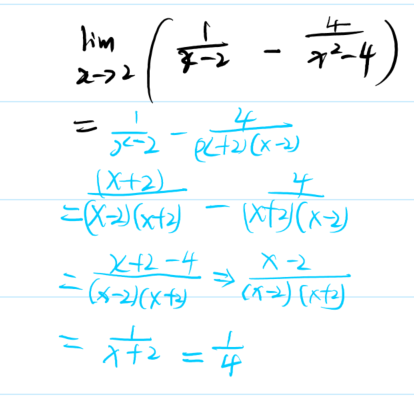 lim x→2 ( 1/(x-2) - 4/(x²-4) )
= 1/(x-2) - 4/((x+2)(x-2))
= (x+2)/((x-2)(x+2)) - 4/((x+2)(x-2))
= (x+2-4)/((x-2)(x+2)) ⇒ (x-2)/((x-2)(x+2))
= 1/(x+2) = 1/4